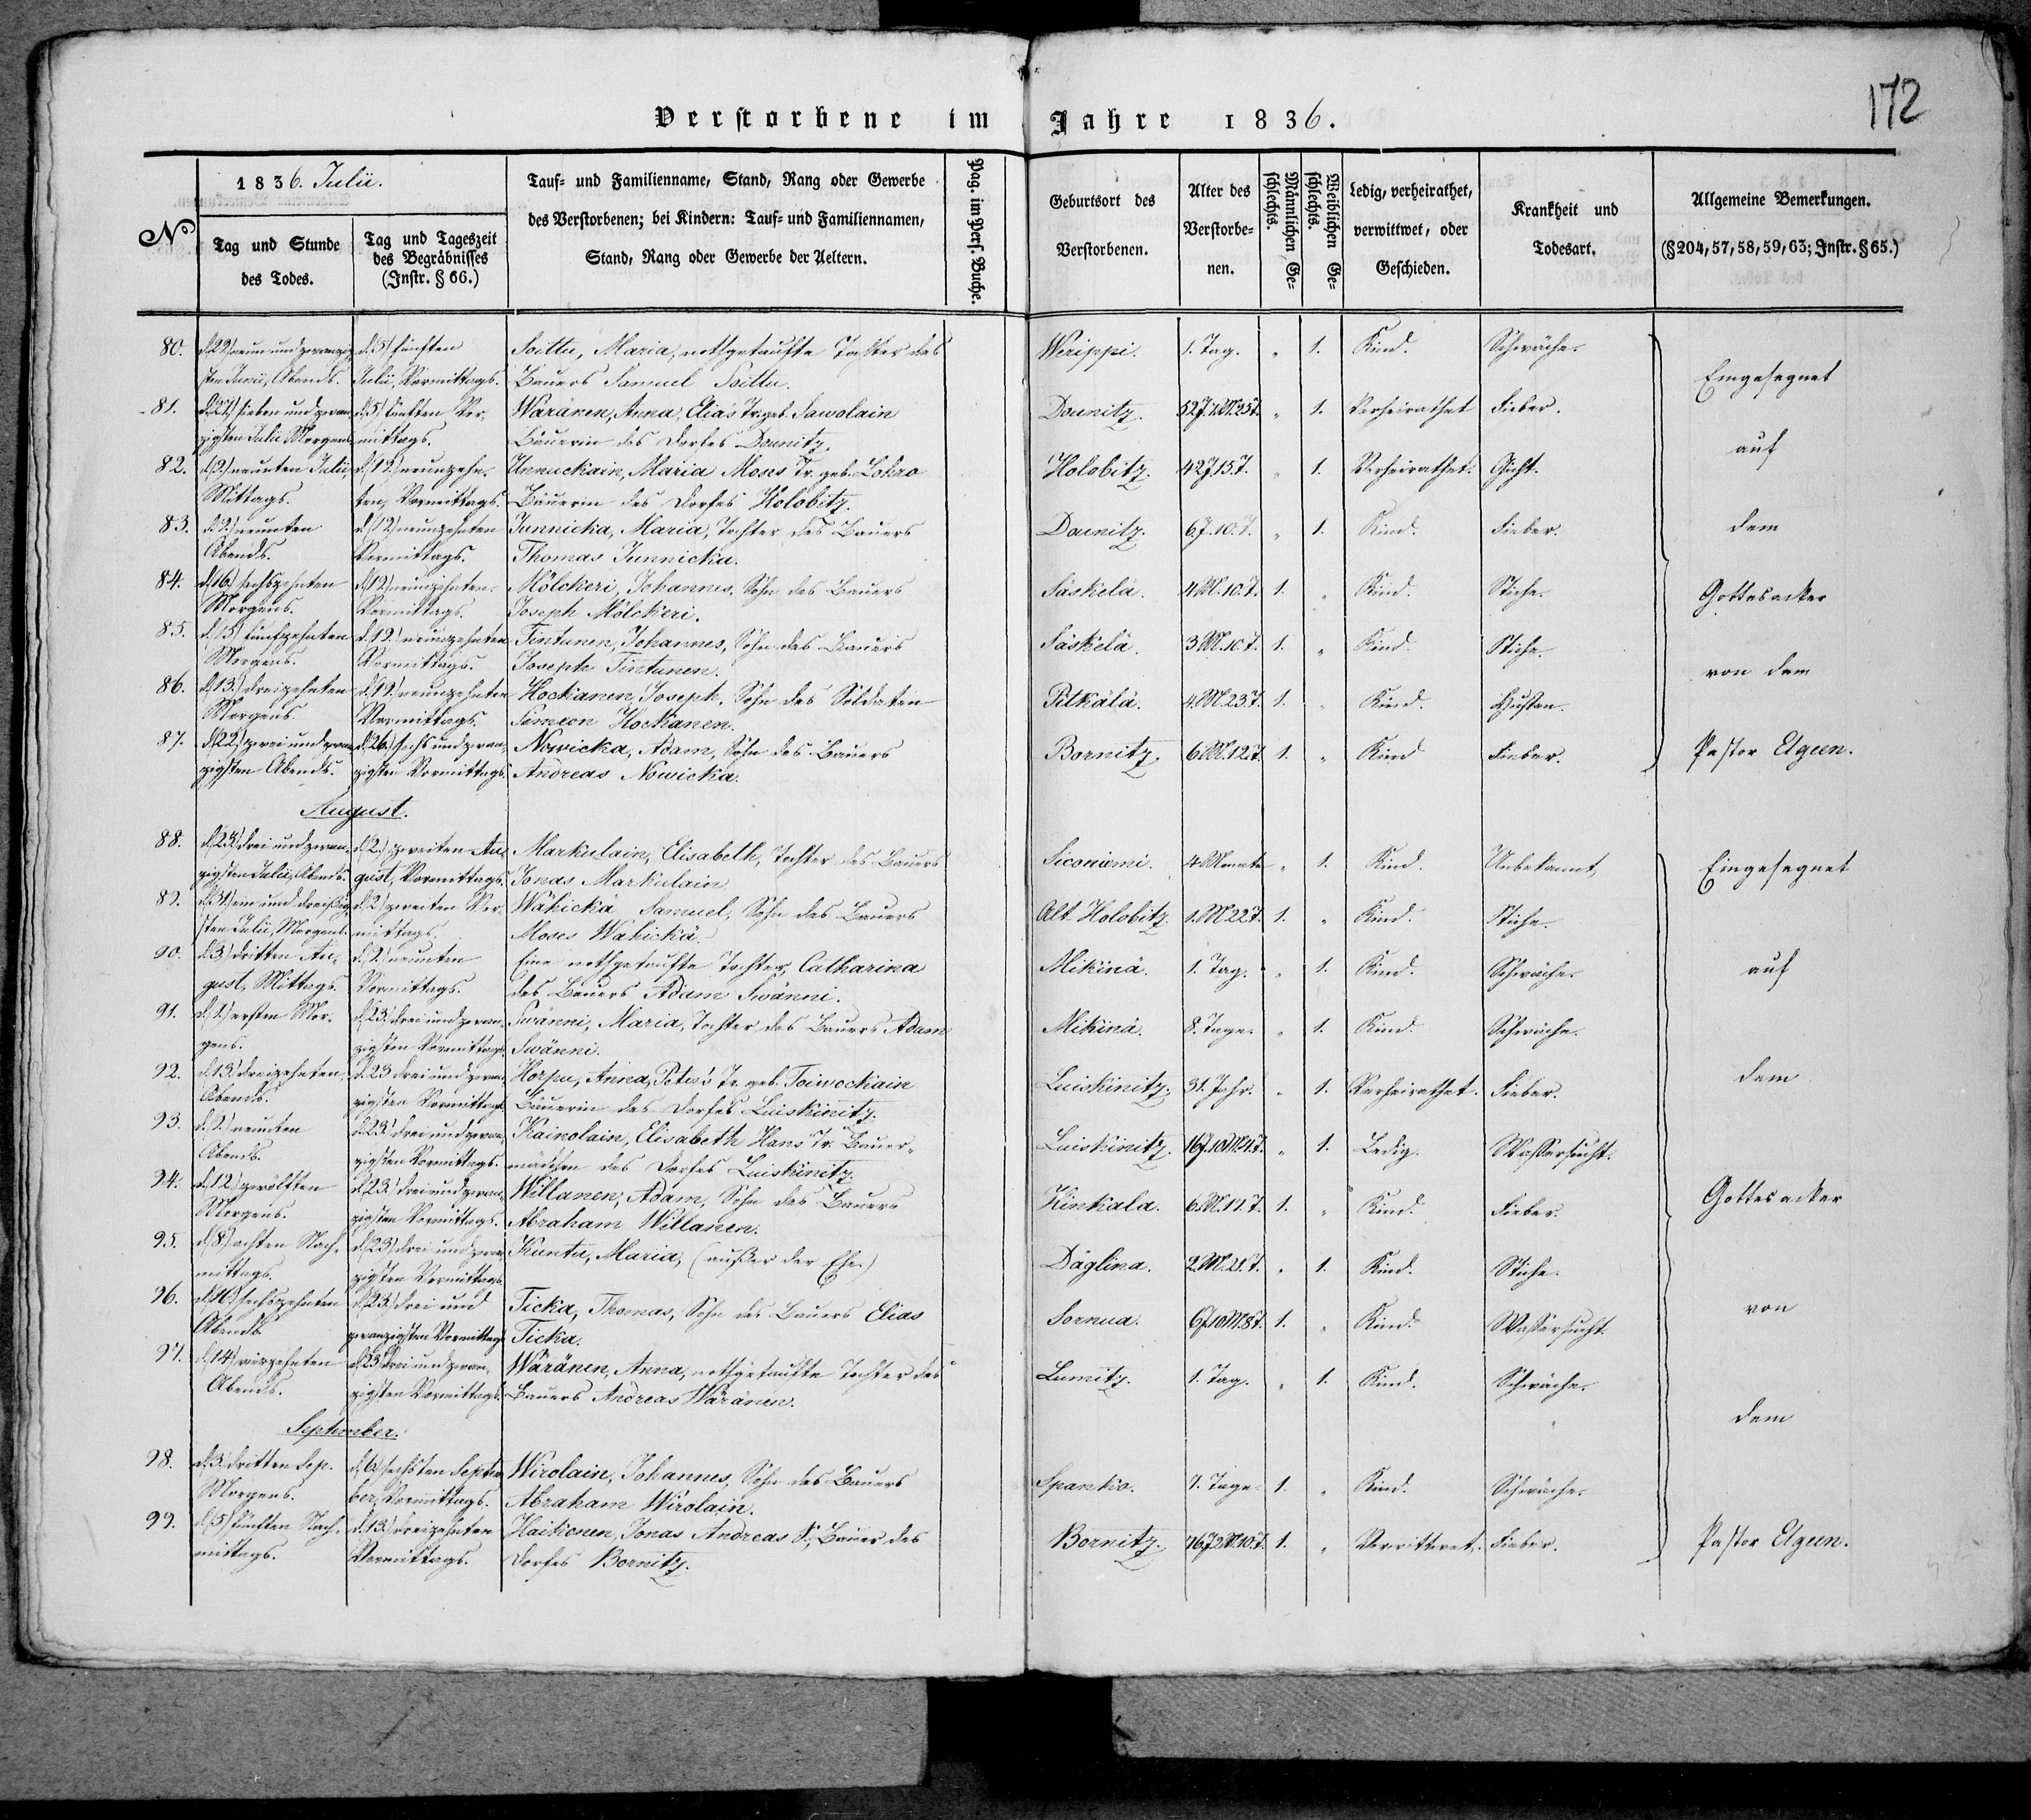 172
Verstorbene im Jahre 1836.
No
1836. Julii.
Tag und Stunde des Todes.
Tag und Tageszeit des Begräbnisses (Instr. § 66.)
Tauf= und Familienname, Stand, Rang oder Gewerbe
des Verstorbenen; bei Kindern: Tauf= und Familiennamen,
Stand, Rang oder Gewerbe der Aeltern.
Pag. im Pers. Buche.
Geburtsort des Verstorbenen.
Alter des Verstorbe-nen.
Männlichen Ge-schlechts.
Weiblichen Ge-schlechts.
Ledig, verheirathet, verwittwet, oder Geschieden.
Krankheit und Todesart.
Allgemeine Bemerkungen.
(§ 204, 57, 58, 59, 63; Instr. § 65.)
80. d. 29) neun und zwanzig- d. 5) fünften Soittu, Maria, nothgetaufte Tochter des Werippi. 1. Tag. „ 1. Kind. Schwäche.
sten Junii, Abends. Julii, Vormittags. Bauers Samuel Soittu.
Eingesegnet
81. d. 27) sieben und zwan- d. 5) fünften Vor- Wäränen, Anna, Elias Tr. geb. Sawolain Dounitz. 52 J. „ 1. Verheirathet Fieber.
zigsten Julii Morgens mittags. Bäuerin des Dorfes Dounitz.
auf
82. d. 9) neunten Julii, d. 19) neunzehn- Unnuckain, Maria Moses Tr. geb. Lokro Holobitz. 42 J. 15 T. „ 1. Verheirathet. Gicht.
Mittags. ten, Vormittags. Bäuerin des Dorfes Holobitz.
83. d. 9) neunten d. 19) neunzehnten Junnicka, Maria, Tochter des Bauers Dounitz. 6 J. 10. T. „ 1. Kind. Fieber.
dem
Abends. Vormittags. Thomas Junnicka.
84. d. 16) sechszehnten d. 19) neunzehnten Mölckeri, Johannes, Sohn des Bauers Säskelä. 4 M. 10. T. 1. „ Kind. Stiche.
Gottesacker
Morgens. Vormittags. Joseph Mölckeri.
85. d. 15) fünfzehnten d. 19) neunzehnten Tintunen, Johannes, Sohn des Bauers Säskelä. 3 M. 10 T. 1. „ Kind. Stiche.
Morgens. Vormittags. Joseph Tintunen.
von dem
86. d. 13.) dreizehnten d. 19) neunzehnten Hockanen, Joseph, Sohn des Soldaten Pitkälä. 4. M. 23. T. 1. „ Kind. Husten.
Morgens. Vormittags. Simeon Hockanen.
87. d. 22) zwei und zwan- d. 26) sechs und zwan- Nowicka, Adam, Sohn des Bauers Bornitz. 6 M. 12. T. 1. „ Kind Fieber.
Pastor Elgeen.
zigsten Abends. zigsten Vormittags. Andreas Nowicka.
August.
88. d. 23) drei und zwan- d. 2.) zweiten Au- Markulain, Elisabeth, Tochter des Bauers Siconiemi. 4 Monate „ 1. Kind. Unbekannt,
Eingesegnet
zigsten Julii, Abends. gust, Vormittags. Jonas Markulain
89. d. 31) ein und dreißig- d. 2) zweiten Vor- Wähickä Samuel, Sohn des Bauers Alt-Holobitz. 1. M. 22 T. 1. „ Kind. Stiche.
sten Julii, Morgens. mittags. Moses Wähickä.
90. d. 3) dritten Au- d. 9) neunten Eine nothgetaufte Tochter, Catharina Mikinä. 1. Tag. „ 1. Kind. Schwäche.
auf
gust, Mittags. Vormittags. des Bauers Adam Swänni.
91. d. 1) ersten Mor- d. 23) drei und zwan- Swänni, Maria, Tochter des Bauers Adam Mikinä. 8. Tage. „ 1. Kind. Schwäche.
gens. zigsten Vormittags. Swänni.
92. d. 13) dreizehnten, d. 23 drei und zwan- Horpu, Anna, Peter's Tr. geb. Toiwockain Luiskinitz. 31. Jahr. „ 1. Verheirathet. Fieber.
dem
Abends. zigsten Vormittags Bäuerin des Dorfes Luiskinitz.
93. d. 9) neunten d. 23) drei und zwan- Kainolain, Elisabeth Hans Tr. Bauer- Luiskinitz. „ 1. Ledig. Wassersucht.
Abends. zigsten Vormittags. mädchen des Dorfes Luiskinitz.
94. d. 12) zwölften d. 23) drei und zwan- Willanen, Adam, Sohn des Bauers Kinkala. 6. M. 17. T. 1. „ Kind. Fieber.
Gottesacker
Morgens. zigsten Vormittags. Abraham Willanen.
95. d. 8) achten Nach- d. 23) drei und zwan- Kuntu, Maria, (außer der Ehe.) Däglina. 2. M. 21. T. „ 1. Kind. Stiche.
mittags. zigsten Vormittags.
96. d. 16) sechszehnten d. 23) drei und Ticka, Thomas, Sohn des Bauers Elias Sornua. 6 J. 10 M. 8 T. 1. „ Kind. Wassersucht.
von
Abends. zwanzigsten Vormittags Ticka.
97. d. 14) vierzehnten d. 23) drei und zwan- Wäränen, Anna, nothgetaufte Tochter des Lumitz. 1. Tag. „ 1. Kind. Schwäche.
Abends. zigsten Vormittags. Bauers Andreas Wäränen.
dem
September.
98. d. 3. dritten Sep. d. 6) sechsten Septem- Wirolain, Johannes, Sohn des Bauers Spanko. 7. Tage. 1. „ Kind. Schwäche.
Morgens. ber, Vormittags. Abraham Wirolain.
99. d. 5) fünften Nach- d. 13) dreizehnten Haikonen, Jonas Andreas S., Bauer des Bornitz. 76 J. 2 M. 10. T. 1. „ Verwittwet. Fieber.
Pastor Elgeen.
mittags. Vormittags. Dorfes Bornitz.